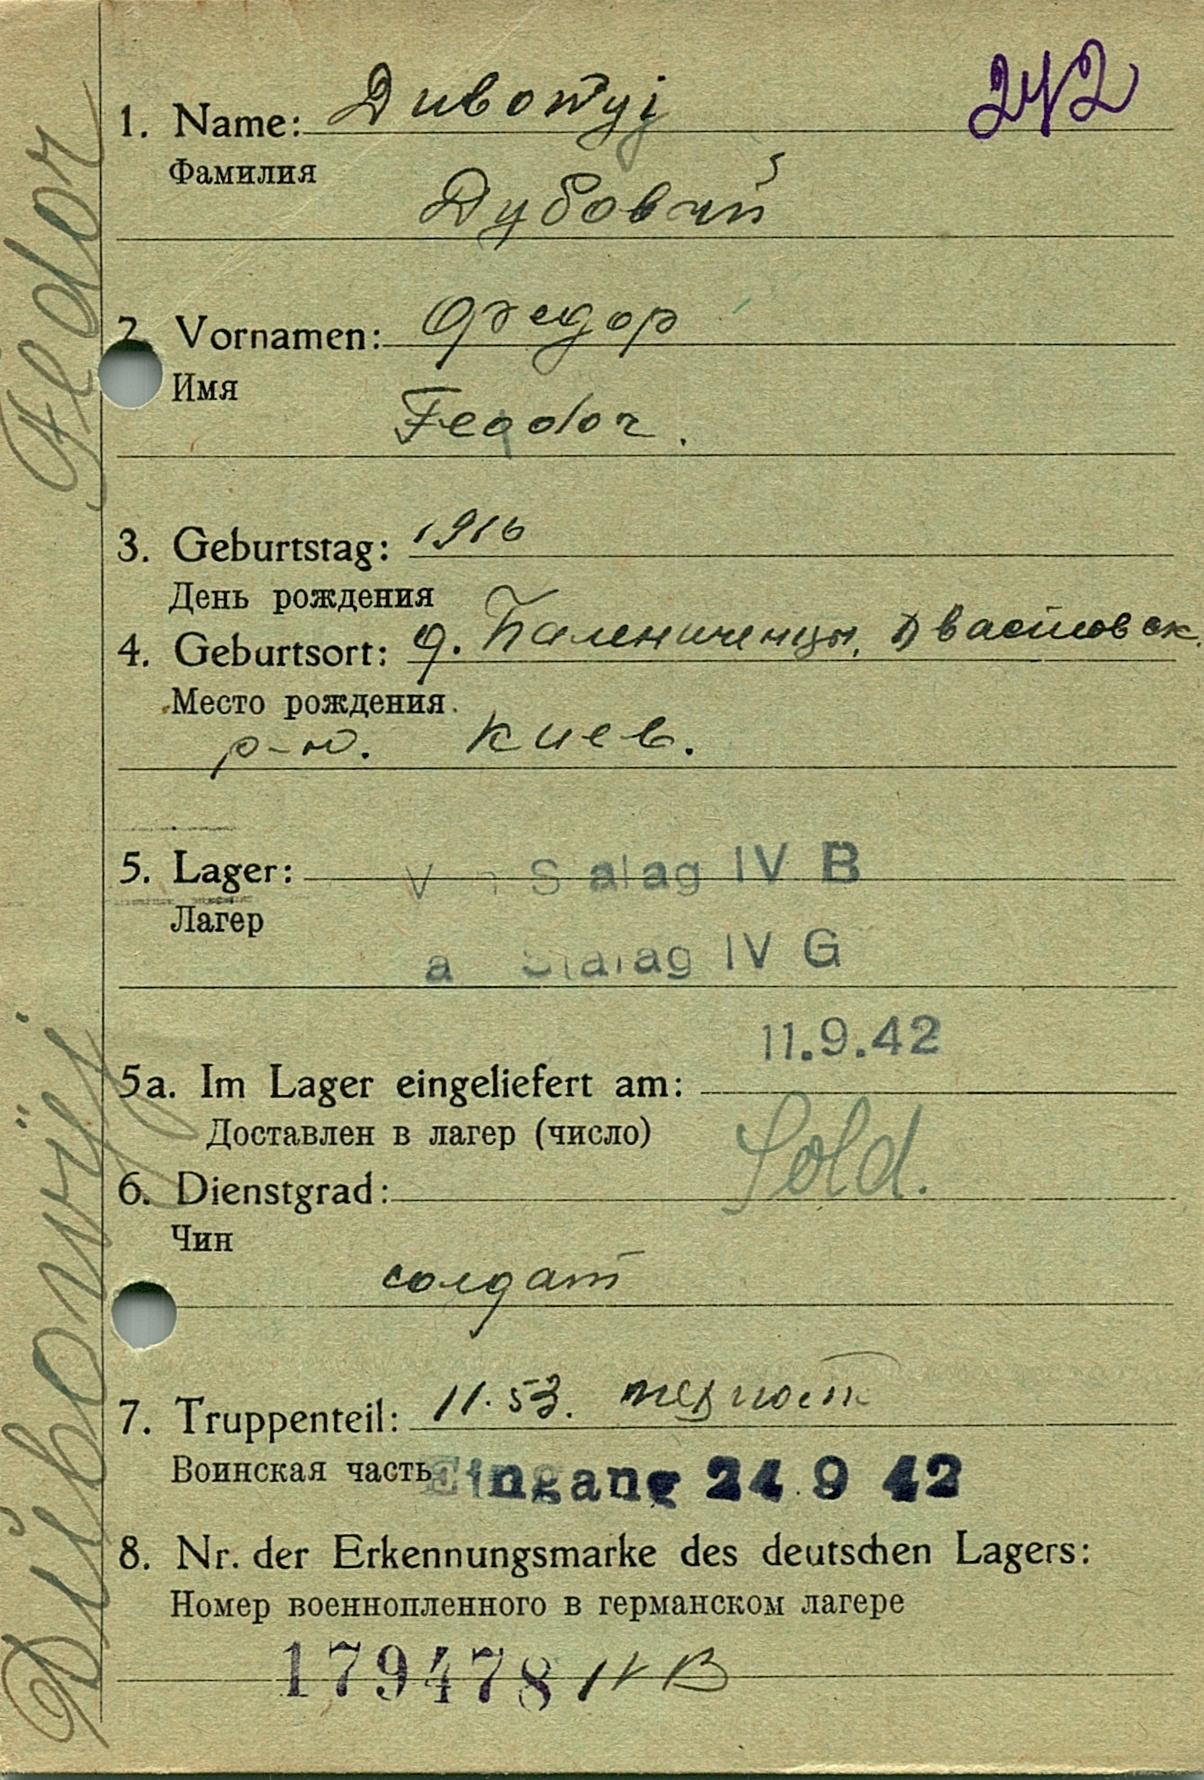 242
1. Name: Dubowyj
Фамилия
Дубовий
2. Vornamen: Федор
Имя
Feodor.
3. Geburtstag: 1916
День рождения
4. Geburtsort: д.
Место рождения
р-н. Киев.
5. Lager: Stalag IV B
Лагер
Stalag IV G
11.9.42
5a. Im Lager eingeliefert am:
Доставлен в лагер (число)
Sold.
6. Dienstgrad:
Чин
солдат
7. Truppenteil: 11.53.
Воинская часть
Eingang 24 9 42
8. Nr. der Erkennungsmarke des deutschen Lagers:
Номер военнопленного в германском лагере
179478 IV B
Dubowyj Fedor